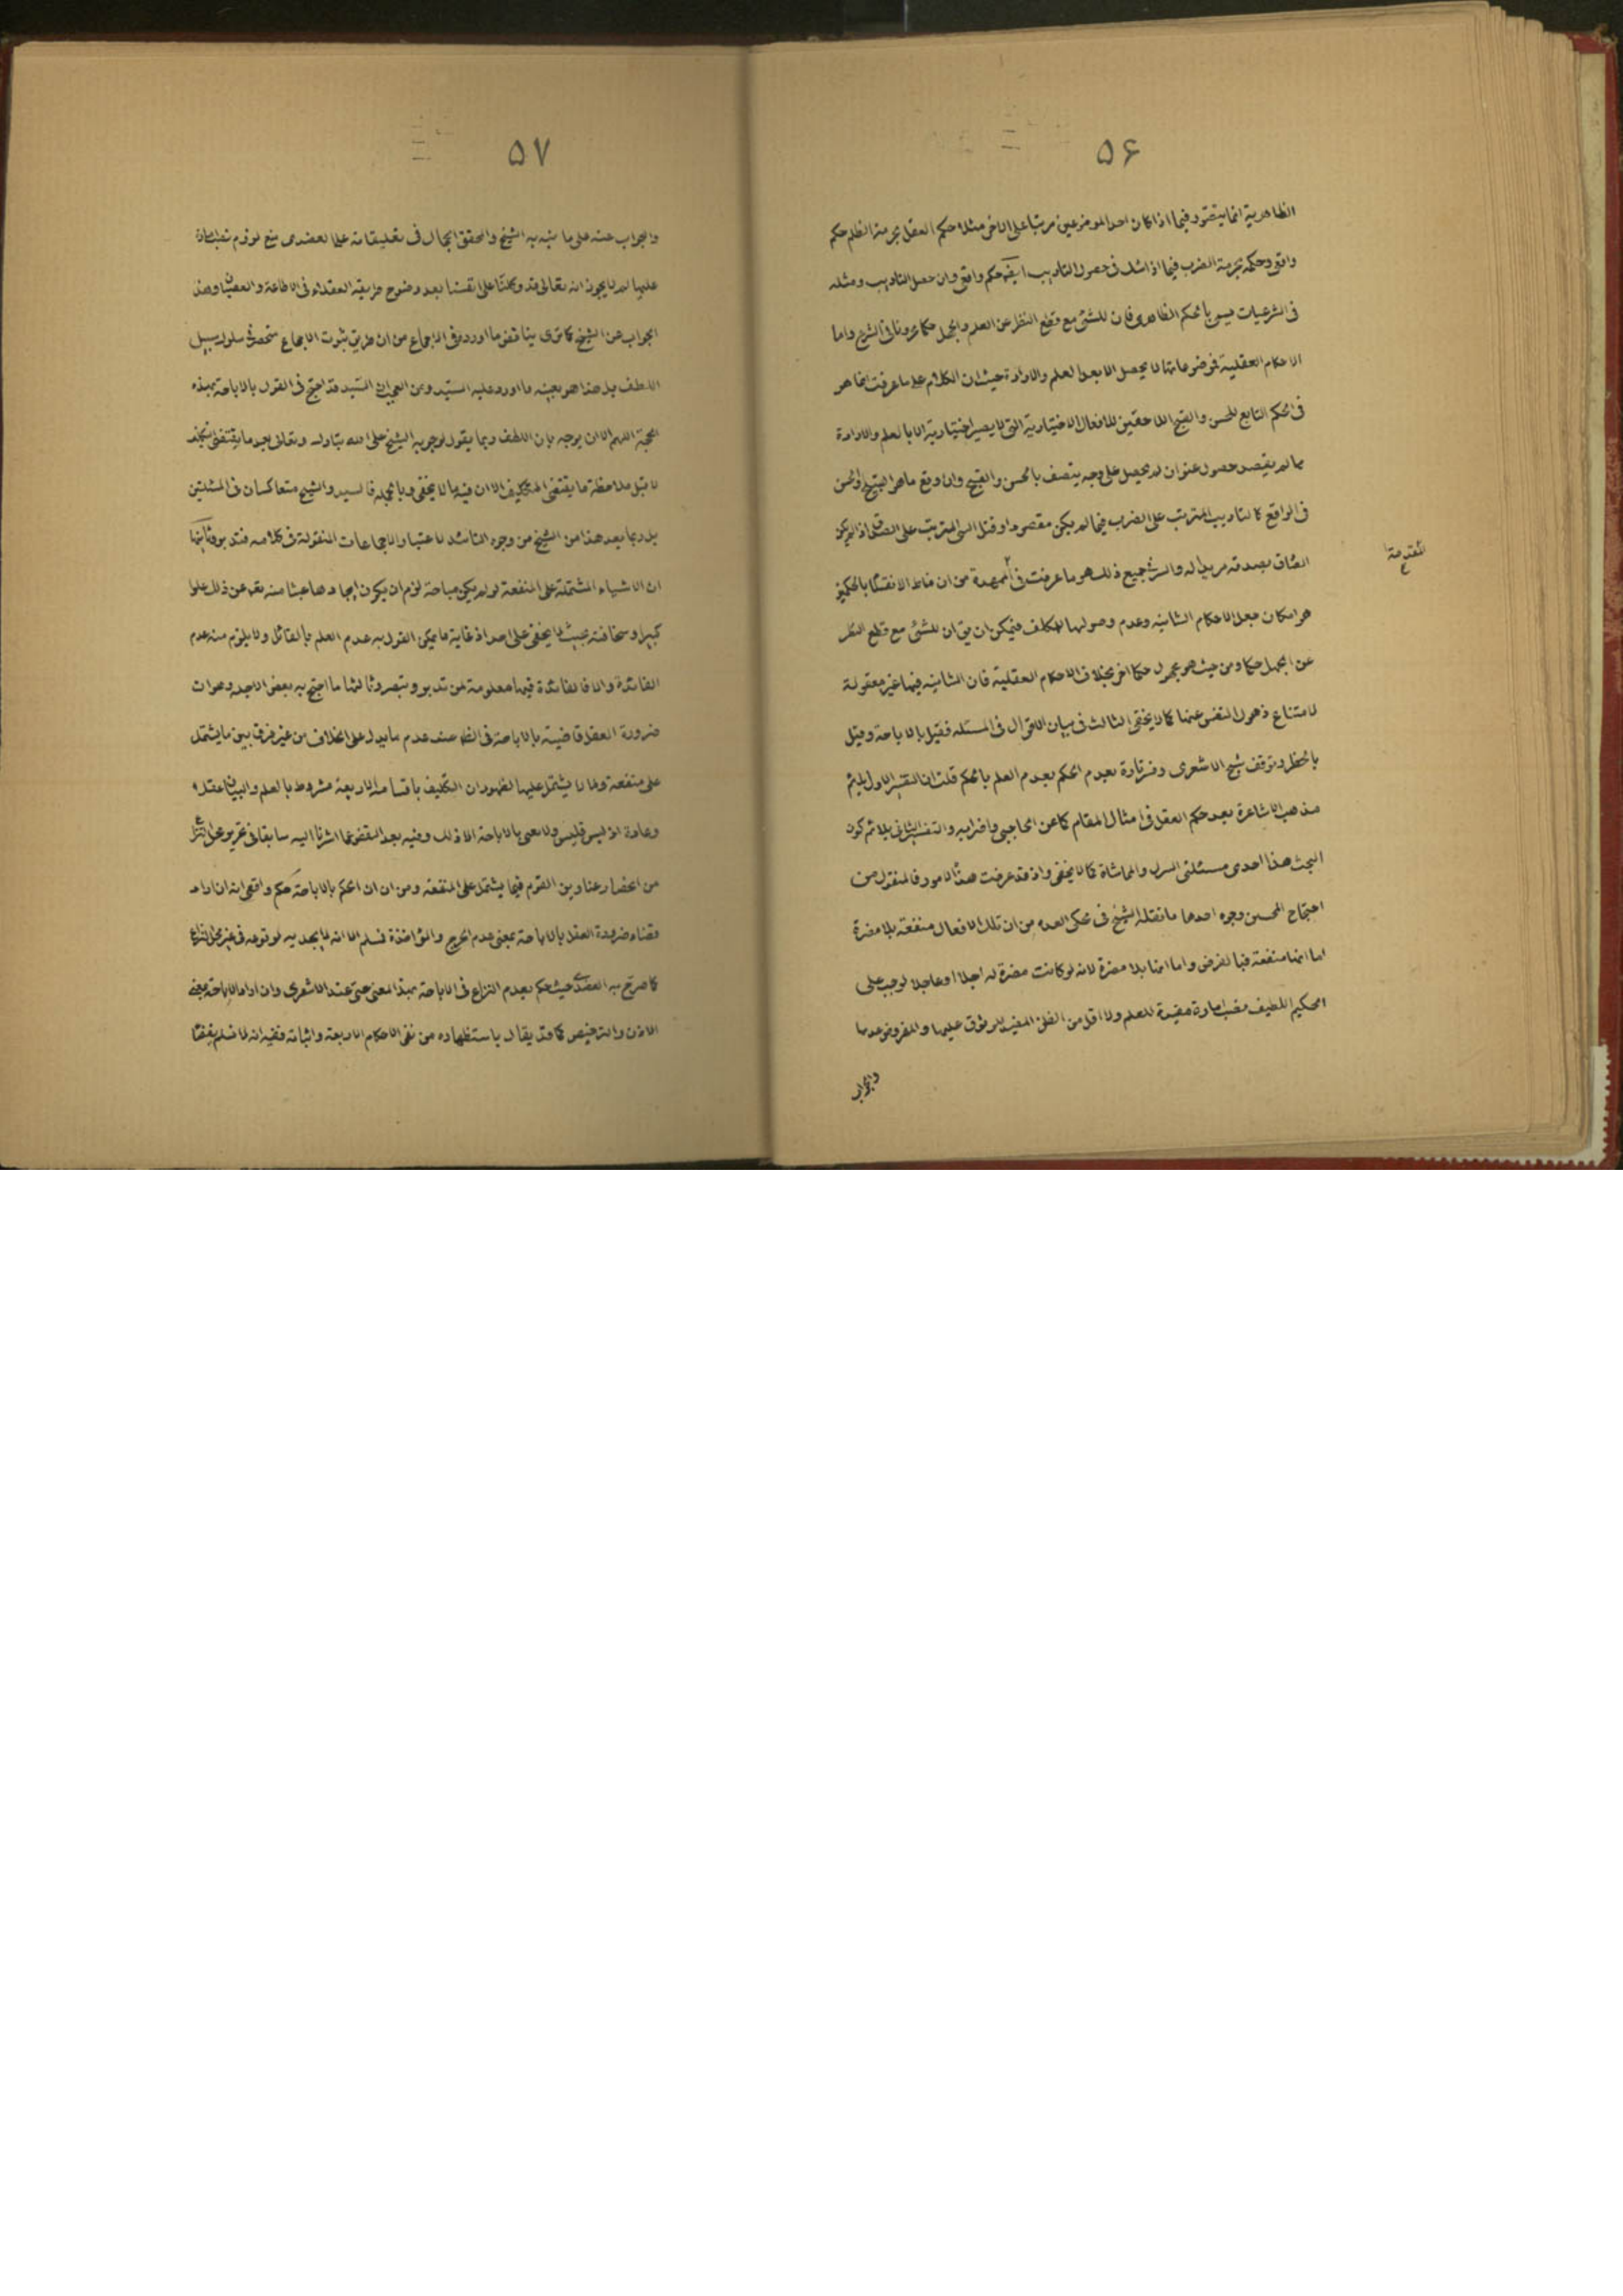 ۵۶
الظاهرية انما يتصور فيما اذا كان احد الموضوعين مرتبا على الاخر مثلا حكم العقل بحرمة الظلم حكم
واقع وحكمه بحرمة الضرب فيما اذا شك فى حصول التاديب ايضا حكم واقع وان حصل التاديب ومثله
فى الشرعيات يسمى بالحكم الظاهرى فان للشئ مع قطع النظر عن العلم والجهل حكما عرونا فى الشرع واما
الاحكام العقلية فموضوعاتها لا يحصل الا بعد العلم والارادة حيث ان الكلام على ما عرفت انما هو
فى الحكم التابع للحسن والقبح اللاحقين للافعال الاختيارية التى لا يصير اختيارية الا بالعلم والارادة
فما لم يقصد حصول عنوان لم يحصل على وجه يتصف بالحسن والقبح وان وقع ما هو القبيح او الحسن
فى الواقع كالتاديب المترتب على الضرب فيما لم يكن مقصودا وقتل النبى المترتب على الصدق اذا لم يكن
الصادق بصدقه مريدا له والسر فى جميع ذلك هو ما عرفت فى الممهدة من ان مناط الانقسام بالحكمين
المقدمة
هو امكان جعل الاحكام الشانيه وعدم وصولها للمكلف فيمكن ان يق ان للشئ مع قطع النظر
عن الجهل حكما ومن حيث هو مجهول حكما اخر بخلاف الاحكام العقلية فان الشانيه فيها غير معقولة
لامتناع ذهول النفس عنها كما لا يخفى الثالث فى بيان الاقوال فى المسئله فقيل بالاباحة وقيل
بالحظر وتوقف شيخ الاشعرى وفسر تارة بعدم الحكم بعدم العلم بالحكم قلت ان التفسير الاول يلائم
مذهب الاشاعرة بعد حكم العقل فى امثال المقام كما عن الحاجبى واضرابه والتفسير الثانى يلائم كون
البحث هذا احدى مسئلتى التنزل والمماشاة كما لا يخفى واذ قد عرفت هذه الامور فالمنقول من
احتجاج المحسن وجوه احدها ما نقله الشيخ فى محكى العده من ان تلك الافعال منفعته بلا مضرة
اما انها منفعة فبالفرض واما انها بلا مضرة لانه لو كانت مضرة له اجلا او عاجلا لوجب على
الحكيم اللطيف نصب امارة مفيدة للعلم ولا اقل من الظن المفيد للوثوق عليها والمفروض عدمها
والجواب
۵۷
والجواب عنه على ما نبه به الشيخ والمحقق الجمال فى تعليقاته على العضدى منع لزوم نصب امارة
عليها لم لا يجوز انه تعالى قد وكلنا على انفسنا بعد وضوح طريقه العقلاء فى الاطاعة والعصيان وهذا
الجواب من الشيخ كما ترى يناقض ما اورده فى الاجماع من ان طريق ثبوت الاجماع منحصر فى سلوك سبيل
اللطف بل هذا هو بعينه ما اورد عليه السيد ومن العجب ان السيد قد احتج فى القول بالاباحة بهذه
الحجة اللهم الا ان يوجه بان اللطف ربما يقول بوجوبه الشيخ على الله تبارك وتعالى بعد ما يقتضى تكليف
لا قبل ملاحظة ما يقتضى التكليف الا ان فيه ما لا يخفى وبالجملة فالسيد والشيخ متعاكسان فى المسئلتين
بل ربما يعد هذا من الشيخ من وجوه التاييد لاعتبار الاجماعات المنقولة فى كلامه فتدبر وثانيها
ان الاشياء المشتملة على المنفعة لو لم يكن مباحة لزم ان يكون ايجادها عبثا منه تعالى عن ذلك علوا
كبيرا وسخافته بحيث لا يخفى على احد اذ غاية ما يمكن القول به عدم العلم بالفائل ولا يلزم منه عدم
الفائدة والا فالفائدة فيها معلومة لمن تدبر وتبصر وثالثها ما احتج به بعض الاجلة وهو ان
ضرورة العقل قاضية بالاباحة فى الظ عند عدم ما يدل على الخلاف من غير فرق بين ما يشتمل
على منفعة وما لا يشتمل عليها لظهور ان التكليف باقسامه الاربعة مشروط بالعلم والبيان عقلا
وعادة اذ ليس فليس ولا نعنى بالاباحة الا ذلك وفيه بعد النقض بما اشرنا اليه سابقا فى تحرير محل النزاع
من انحصار عناوين القوم فيما يشتمل على المنفعة ومن ان الحكم بالاباحة حكم واقعى انه ان اراد
قضاء ضرورة العقل بالاباحة بمعنى عدم الحرج والمؤاخذة فسلم الا انه لا يجديه لوقوعه فى غير محل النزاع
كما صرح به العضدى حيث حكم بعدم النزاع فى الاباحة بهذا المعنى حتى عند الاشعرى وان اراد الاباحة بمعنى
الاذن والترخيص كما قد يقال باستظهاره من نفى الاحكام الاربعة واثباته ففيه انه لا نسلم